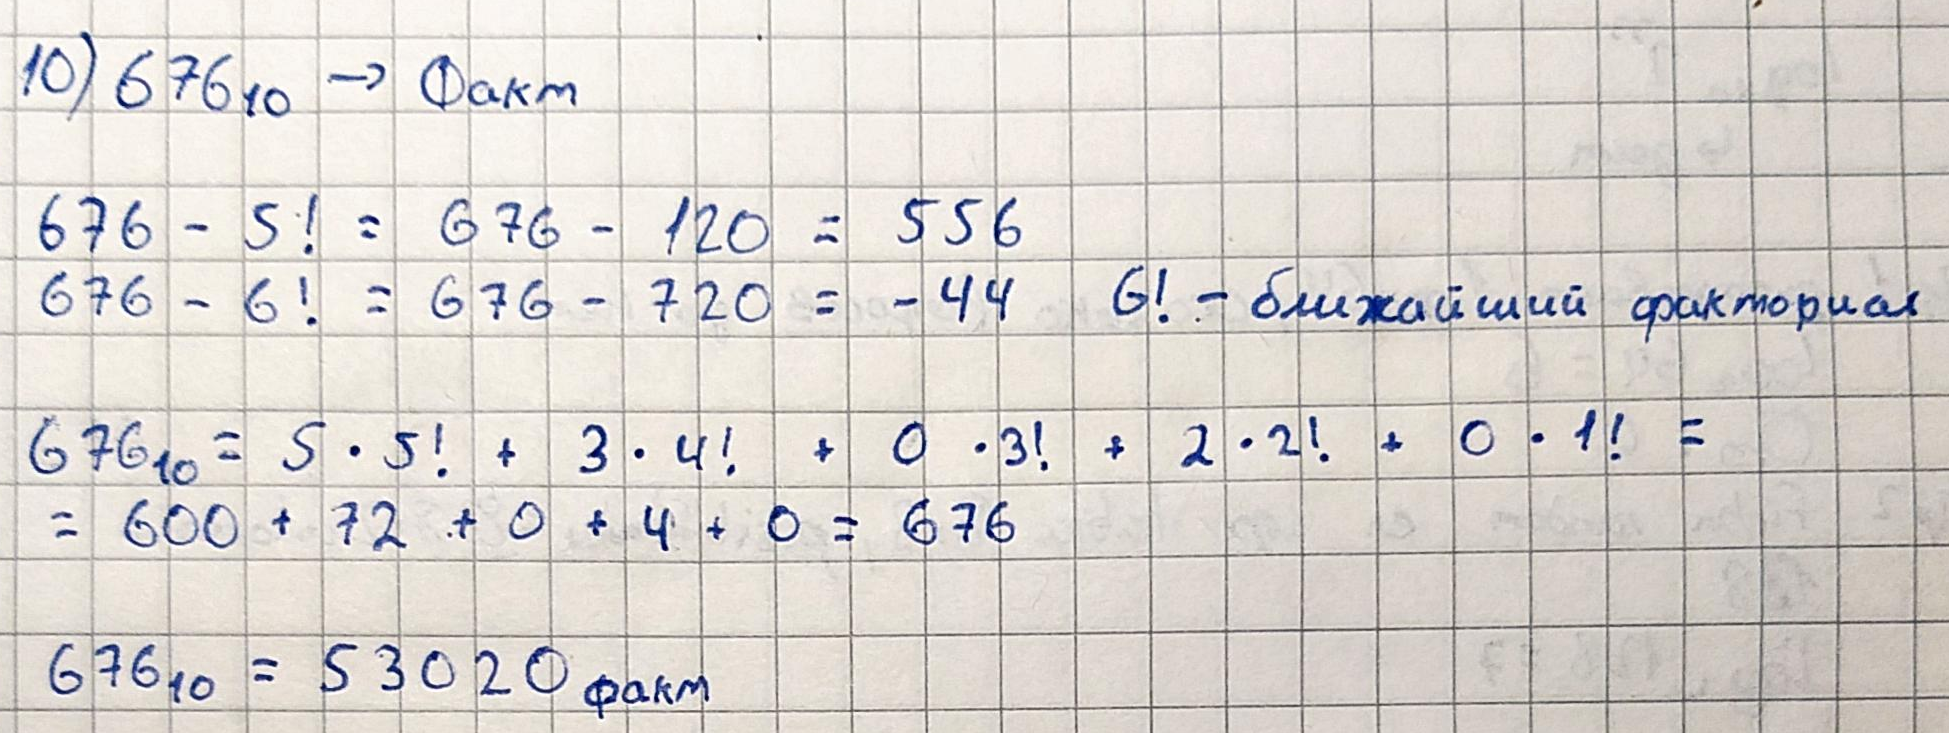 10) 676₁₀ → Факт
676 - 5! = 676 - 120 = 556
676 - 6! = 676 - 720 = -44 6! - ближайший факториал
676₁₀ = 5 · 5! + 3 · 4! + 0 · 3! + 2 · 2! + 0 · 1! =
= 600 + 72 + 0 + 4 + 0 = 676
676₁₀ = 53020факт